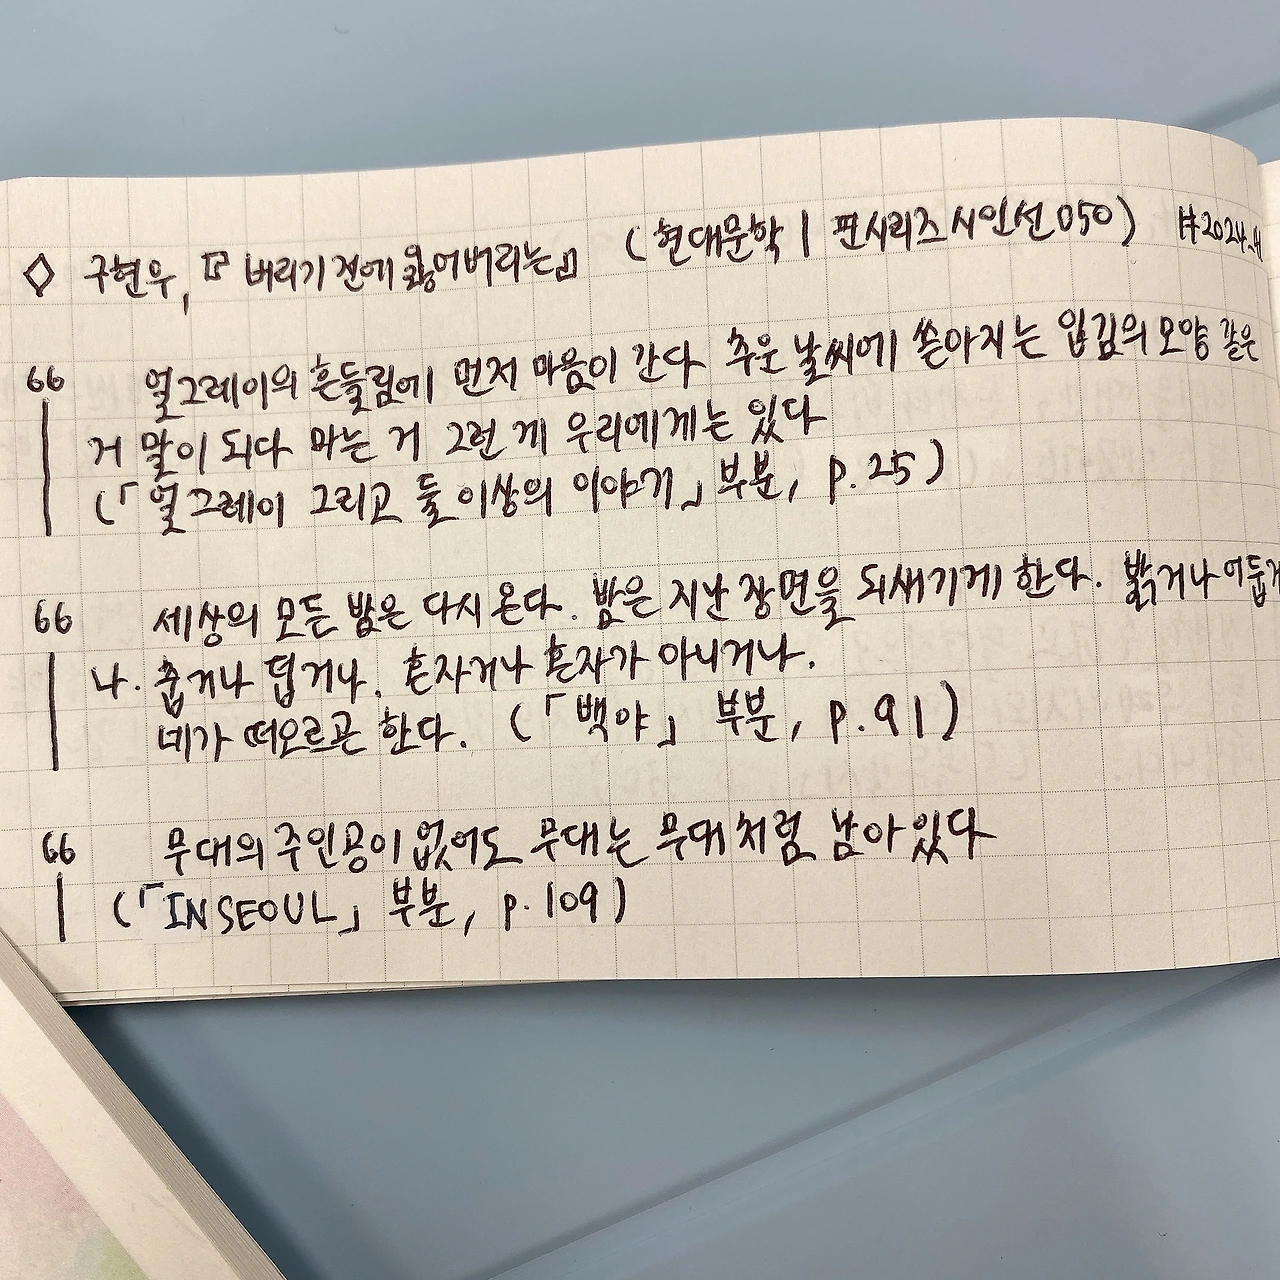 ◇ 구현우, 『버리기 전에 잃어버리는』 (현대문학 | 핀시리즈 시인선 050) #2024
66 얼그레이의 흔들림에 먼저 마음이 간다 추운 날씨에 쏟아지는 입김의 모양 같은
거 말이 되다 마는 거 그런 게 우리에게는 있다
(「얼그레이 그리고 둘 이상의 이야기」 부분, p.25)
66 세상의 모든 밤은 다시 온다. 밤은 지난 장면을 되새기게 한다. 밝거나 어둡거
나. 춥거나 덥거나. 혼자거나 혼자가 아니거나.
네가 떠오르곤 한다. (「백야」 부분, p.91)
66 무대의 주인공이 없어도 무대는 무대처럼 남아있다
(「IN SEOUL」 부분, p.109)